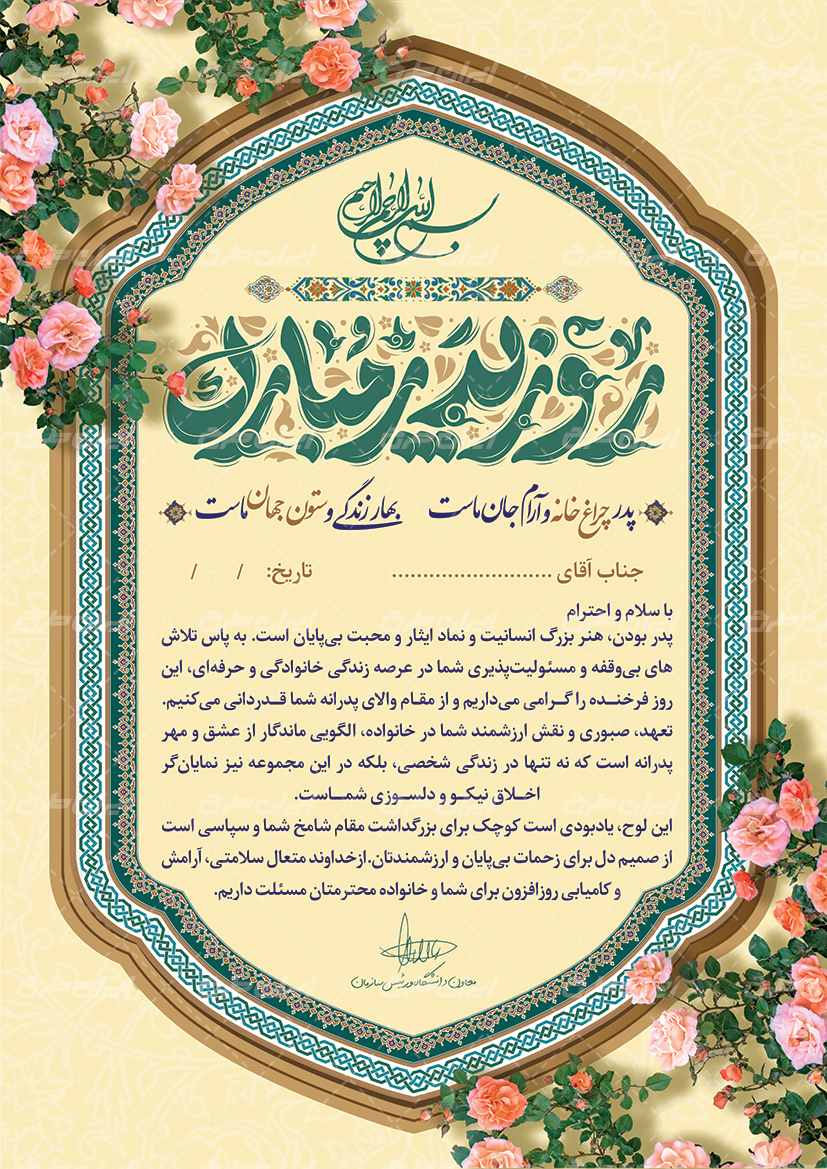 بسم الله الرحمن الرحیم
روز پدر مبارک
پدر چراغ خانه و آرام جان ماست بهار زندگی و ستون جهان ماست
جناب آقای .......................... تاریخ: / /
با سلام و احترام
پدر بودن، هنر بزرگ انسانیت و نماد ایثار و محبت بی‌پایان است. به پاس تلاش
های بی‌وقفه و مسئولیت‌پذیری شما در عرصه زندگی خانوادگی و حرفه‌ای، این
روز فرخنده را گرامی می‌داریم و از مقام والای پدرانه شما قدردانی می‌کنیم.
تعهد، صبوری و نقش ارزشمند شما در خانواده، الگویی ماندگار از عشق و مهر
پدرانه است که نه تنها در زندگی شخصی، بلکه در این مجموعه نیز نمایان‌گر
اخلاق نیکو و دلسوزی شماست.
این لوح، یادبودی است کوچک برای بزرگداشت مقام شامخ شما و سپاسی است
از صمیم دل برای زحمات بی‌پایان و ارزشمندتان.ازخداوند متعال سلامتی، آرامش
و کامیابی روزافزون برای شما و خانواده محترمتان مسئلت داریم.
معاون دانشگاه و رئیس سازمان